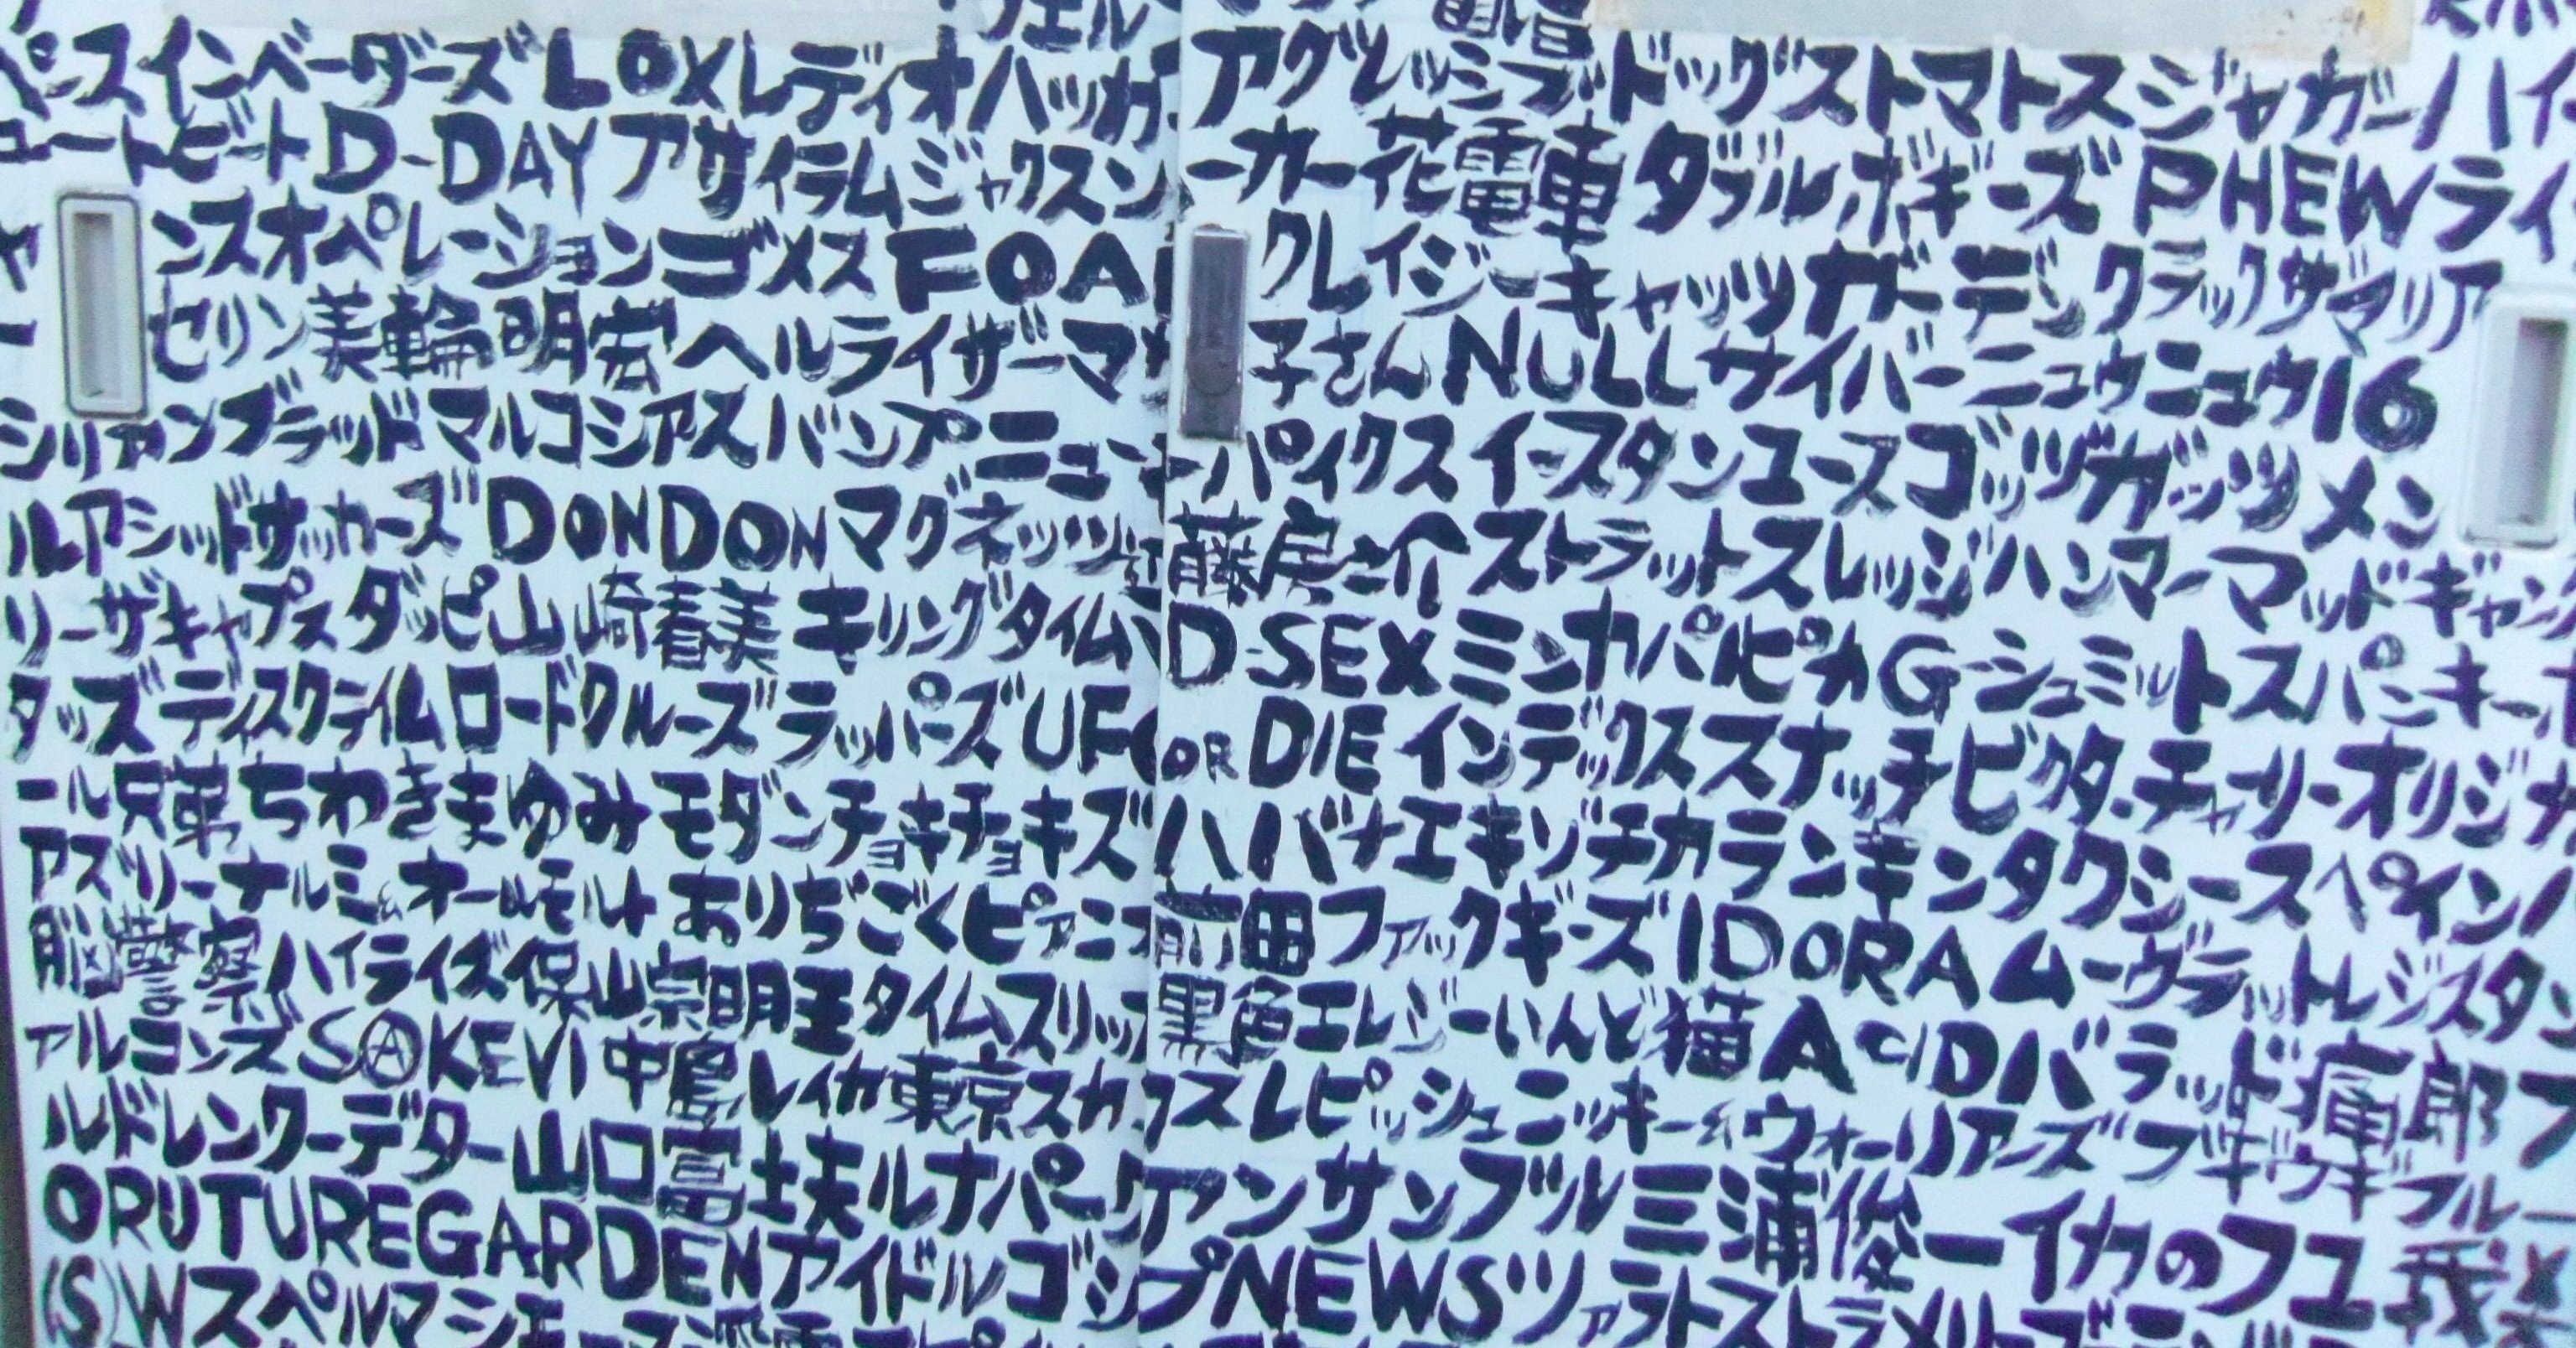 ペースインベーダーズLOXレディオハッカーアグレッシブドッグストマトスジャガーハイ
ュートビートD-DAYアサイラムジャクスンーカー花電車ダブルボギーズPHEWライ
ンスオペレーションゴメスFOAクレイジーキャッツガーデンクラックザマリア
セリン美輪明宏ヘルライザーマ子さんNULLサイバーニュウニュウ16
シリアンブラッドマルコシアスバンプニューーパイクスイースタンユースゴッヅガッツメン
ルアシッドサッカーズDONDONマグネッツ近藤房之介ストラットスレッジハンマーマッドギャン
リーザキャプスダッピ山崎春美キリングタイムD-SEXミンカパルピカG-シュミットスパンキー
タッズディスクライムロードクルーズラッパーズUFO OR DIEインデックススナッチビクターチャーリーオリジナ
ール兄弟ちわきまゆみモダンチョキチョキズハバナエキゾチカランキンタクシースペイン
アズリーナルミ&オールモルトありぢごくピアニ前田ファックギーズIDORAムーヴラットレジスタン
脳警察ハイライズ保山宗明玉タイムスリップ黒色エレジーいんど猫ACIDバラッド痛郎フ
アルミンズSAKEVI中島レイカ東京スカフスレピッシュニッキー&ウォーリアーズブギウギフル
ルドレンクーデター山口冨士夫ルナパークアンサンブル三浦俊一イカのフユ我
ORUTUREGARDENカイドルゴシップNEWSツァラトストラ
(S)Wスペルマシ